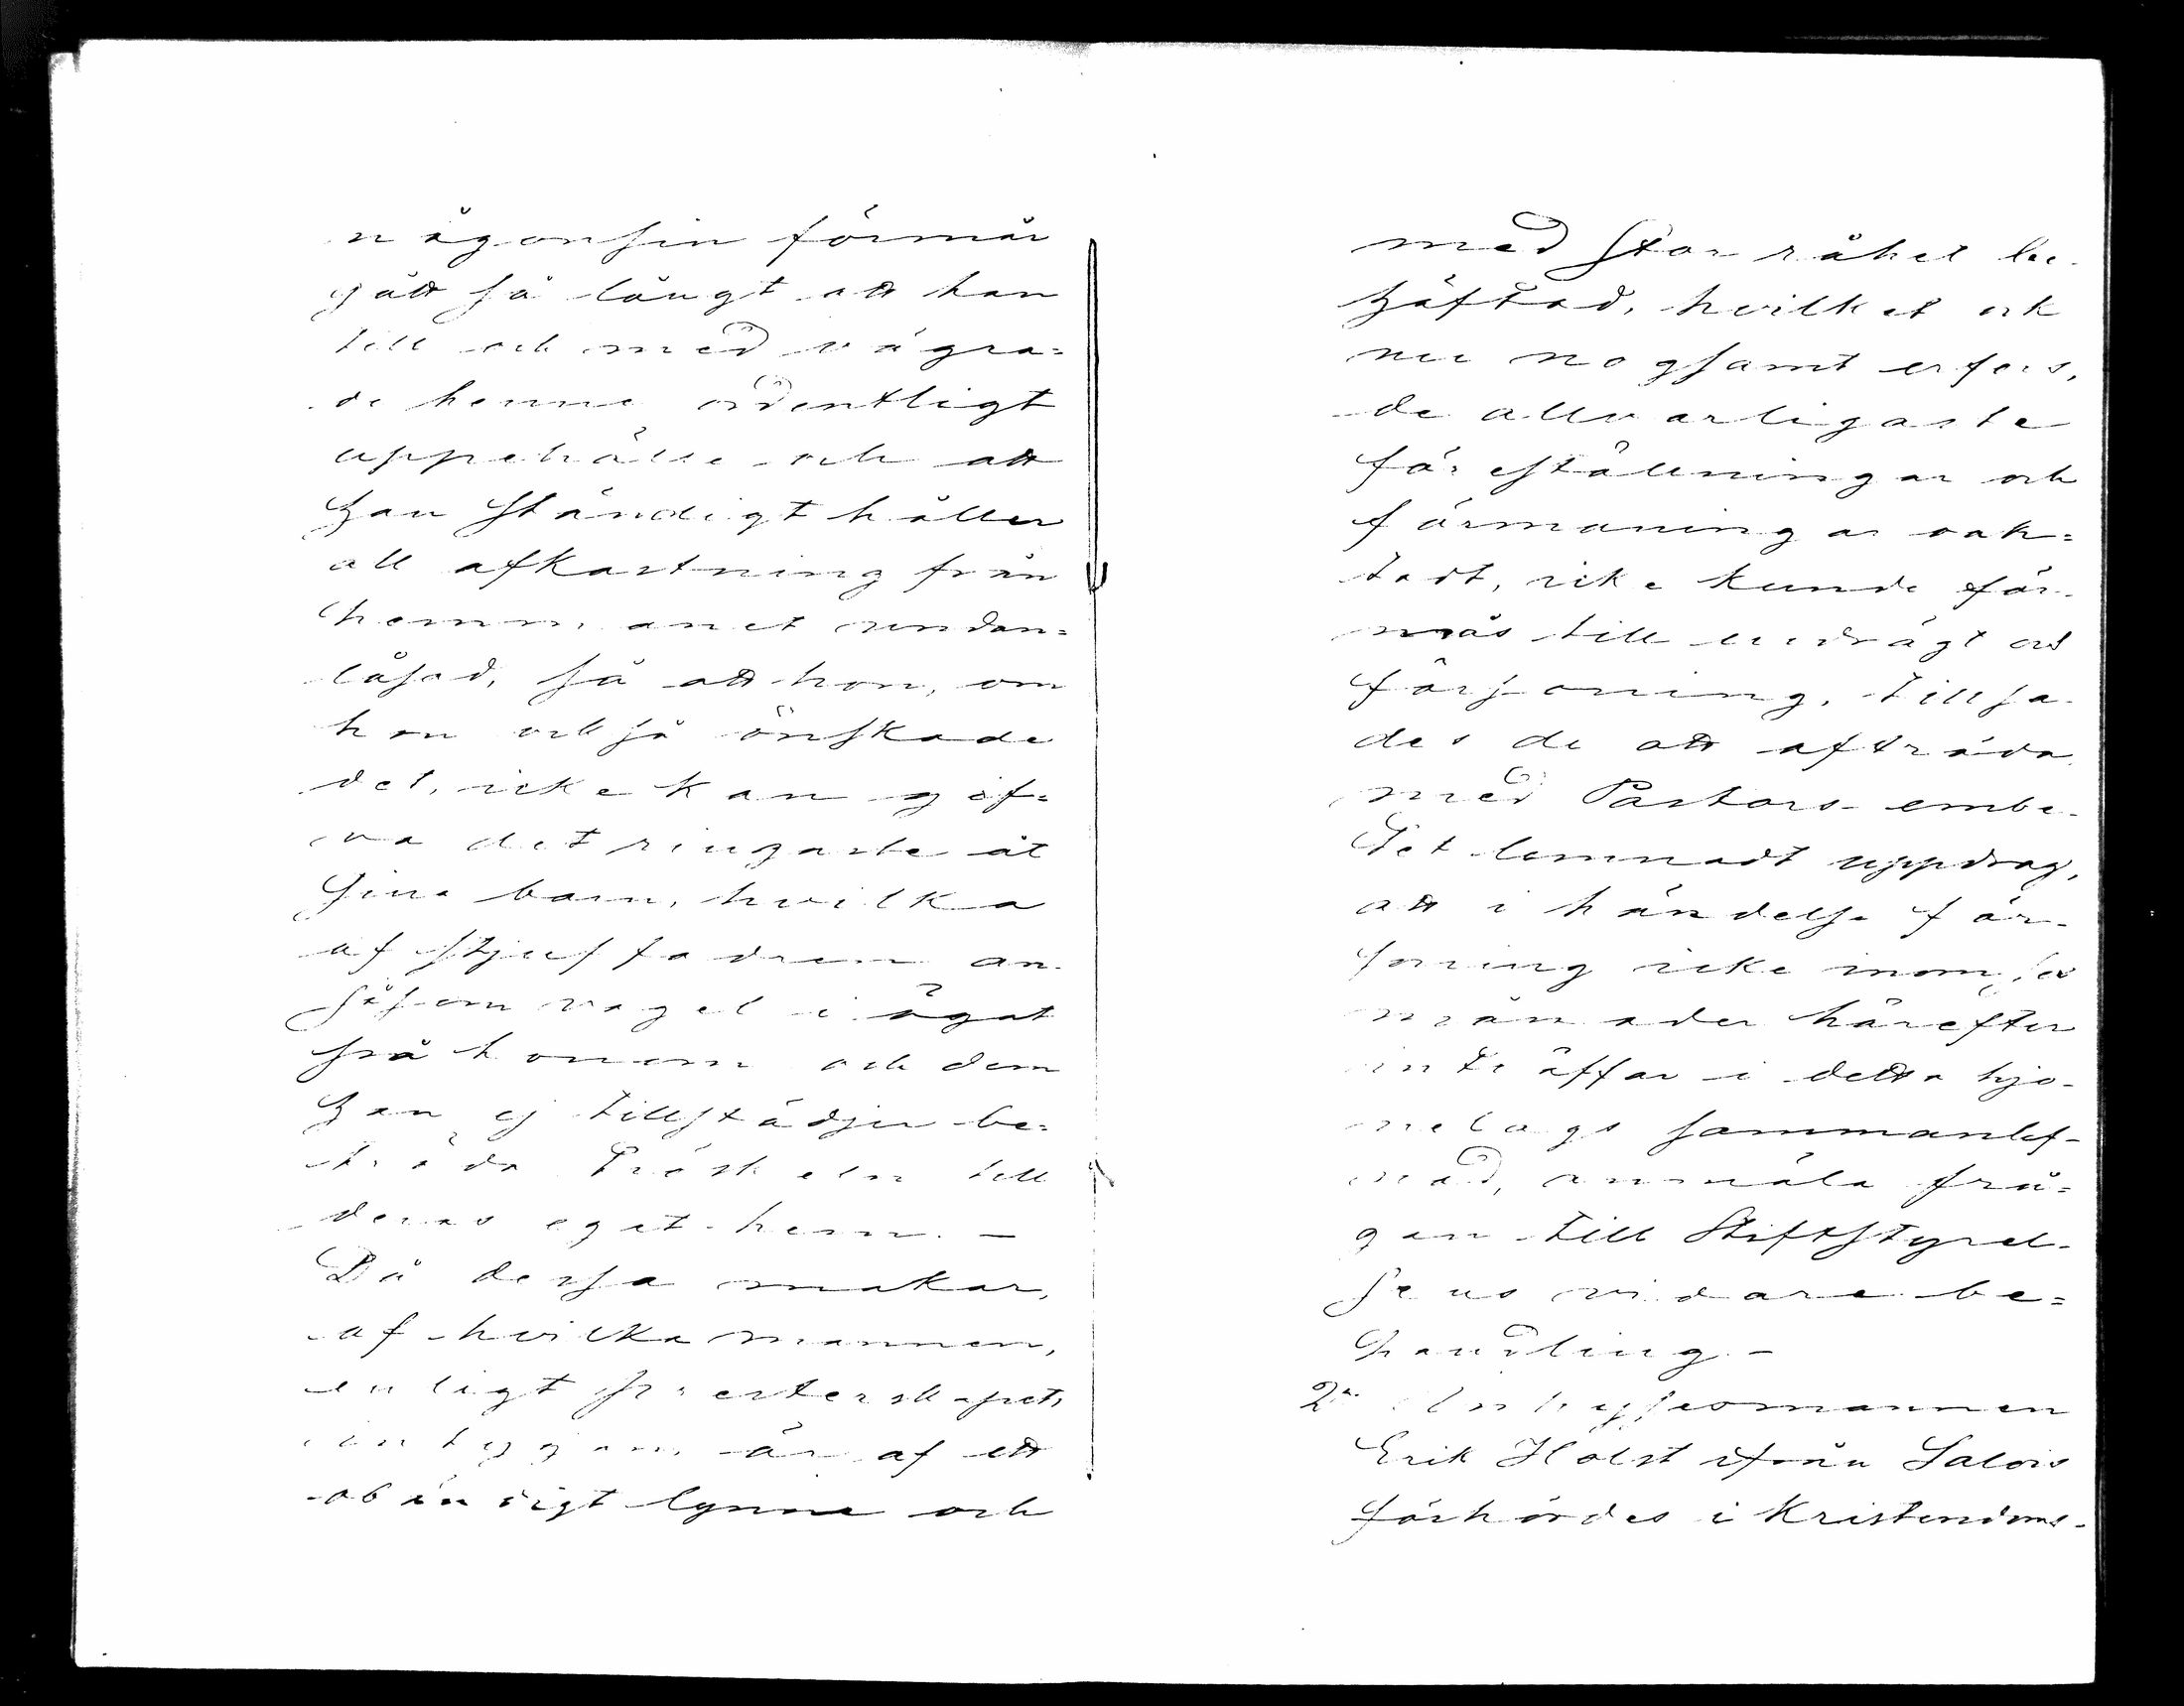 någonsin förmår
gått så långt att han
till och med vägra=
de henne ordentligt
uppehälle och att
han ständigt håller
all afkastning från
hemmanet undan=
låsad, så att hon, om
hon också önskade
det, icke kan gif=
va det ringaste åt
sina barn, hvilka
af stjuffadren an-
ses som nagel i ögat
på honom och dem
han ej tillstädjer be=
träda tröskeln till
deras eget hem. —
Då dessa makar,
af hvilka mannen,
enligt presterskapets
intygan, är af ett
obändigt lynne och
med stor råhet be-
häftad, hvilket ock
nu nogsamt erfors,
de allvarligaste
föreställningar och
förmaningar oak=
tadt, icke kunde för-
mås till endrägt och
försoning, tillsa-
des de att afträda
med Pastors-embe-
tet lemnadt uppdrag,
att i händelse för-
soning icke inom sex
månader härefter
inträffar i detta hjo-
nelags sammanlef-
nad, anmäla frå=
gan till Stiftstyrel-
sens vidare be=
handling. —
2:o Inhysesmannen
Erik Holst ifrån Salois
förhördes i Kristendoms-